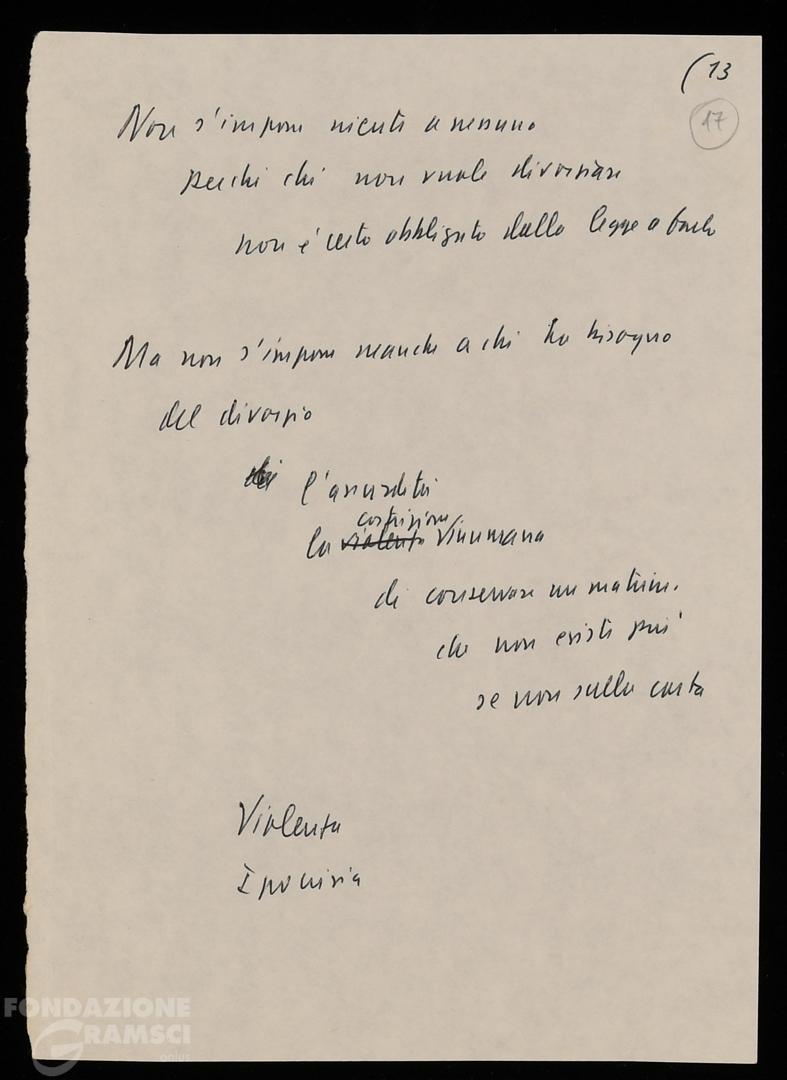 (13
17
Non s'impone niente a nessuno
perché chi non vuole divorziare
non è certo obbligato dalla legge a farlo
Ma non s'impone neanche a chi ha bisogno
del divorzio
di l'assurdità
costrizione
la violenza inumana
di conservare un matrim.
che non esiste più
se non sulla carta
Violenza
Ipocrisia
FONDAZIONE
GRAMSCI
onlus